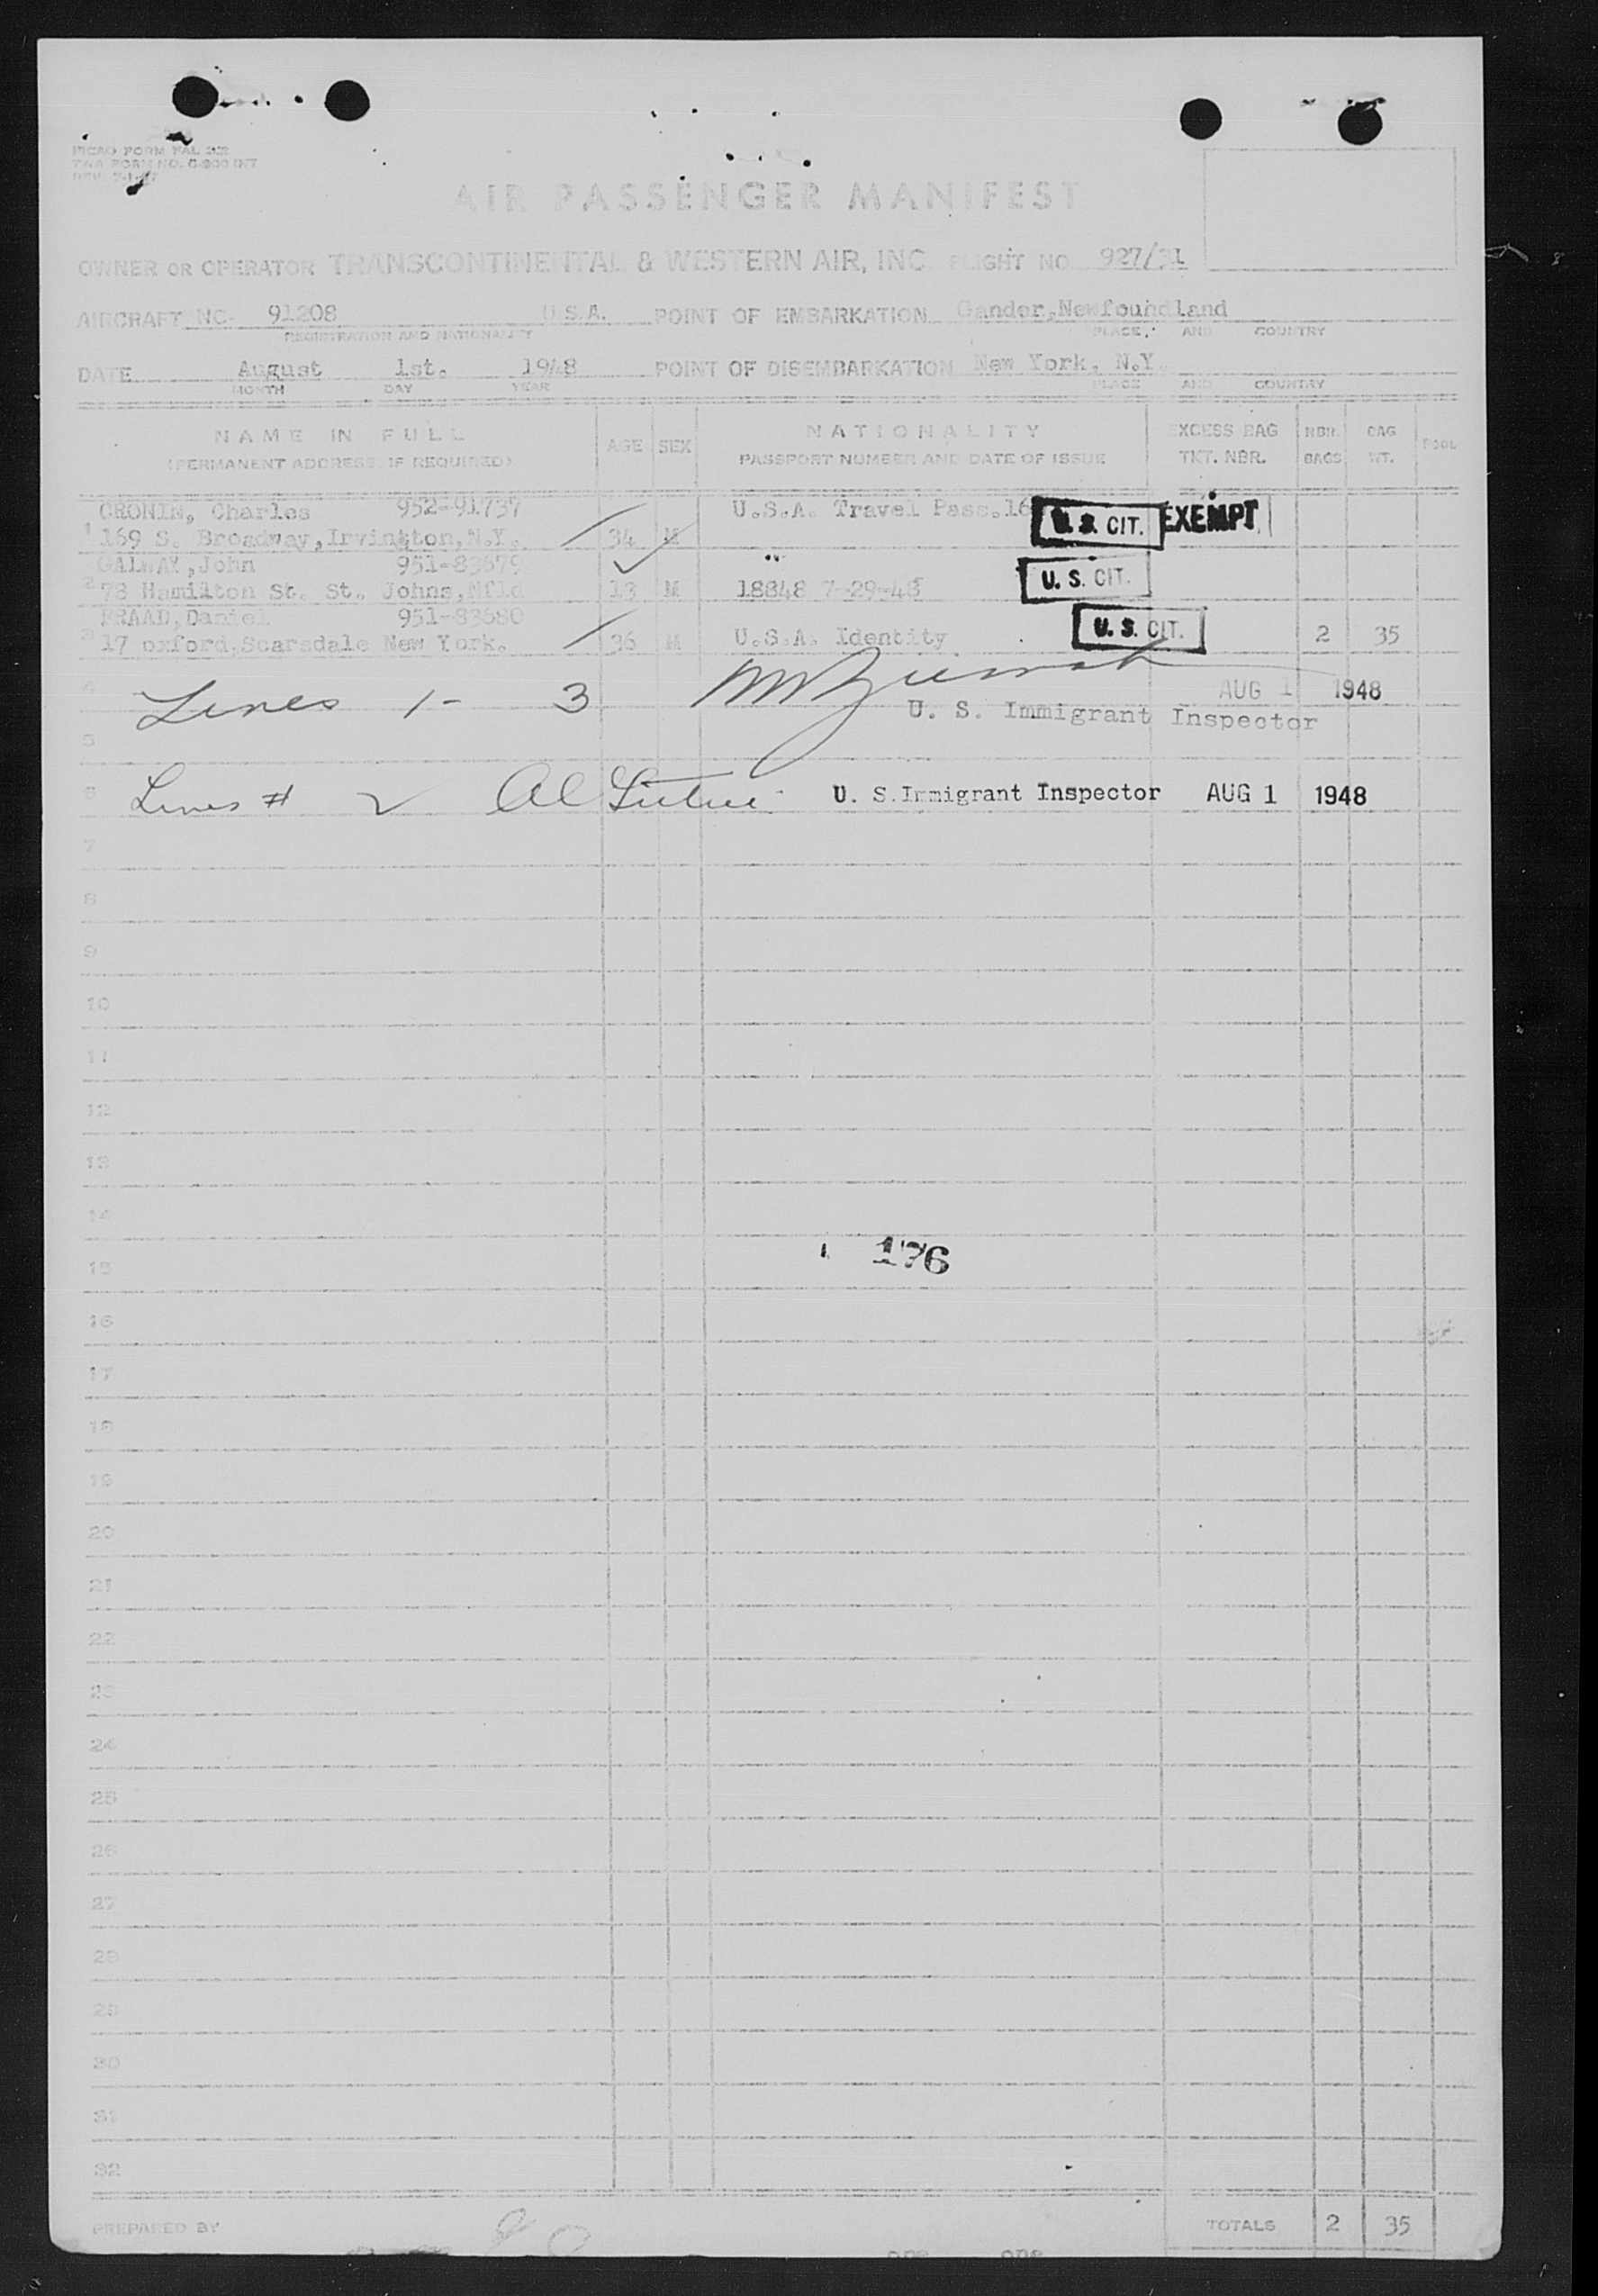 AIR PASSENGER MANIFEST
OWNER OR OPERATOR TRANSCONTINENTAL & WESTERN AIR, INC FLIGHT NO. 927/31
AIRCRAFT NO. 91208 U.S.A. POINT OF EMBARKATION Gander, Newfoundland
REGISTRATION AND NATIONALITY PLACE, AND COUNTRY
DATE August 1st. 1948 POINT OF DISEMBARKATION New York, N.Y.
MONTH DAY YEAR PLACE AND COUNTRY
NAME IN FULL AGE SEX NATIONALITY EXCESS BAG NBR. BAG POOL
(PERMANENT ADDRESS, IF REQUIRED) PASSPORT NUMBER AND DATE OF ISSUE TKT. NBR. BAGS WT.
CRONIN, Charles 952-91737 U.S.A. Travel Pass.16 U. S. CIT. EXEMPT
1 169 S. Broadway, Irvington, N.Y. 34 M
GALWAY, John 951-83679 "
2 78 Hamilton St. St. Johns, Nfld 13 M 18848 7-29-48 U. S. CIT.
FRAAD, Daniel 951-83680
3 17 oxford, Scarsdale New York. 36 M U.S.A. Identity U. S. CIT. 2 35
4 Lines 1 - 3 AUG 1 1948
U. S. Immigrant Inspector
5
6 Lines # 2 U. S. Immigrant Inspector AUG 1 1948
7
8
9
10
11
12
13
14
176
15
16
17
18
19
20
21
22
23
24
25
26
27
28
29
30
31
32
PREPARED BY TOTALS 2 35